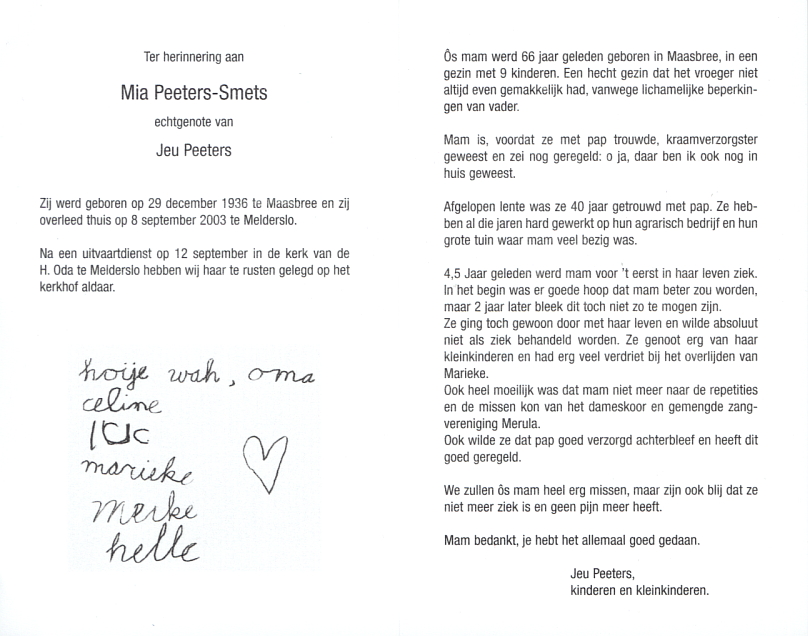 Ter herinnering aan
Mia Peeters-Smets
echtgenote van
Jeu Peeters
Zij werd geboren op 29 december 1936 te Maasbree en zij
overleed thuis op 8 september 2003 te Melderslo.
Na een uitvaartdienst op 12 september in de kerk van de
H. Oda te Melderslo hebben wij haar te rusten gelegd op het
kerkhof aldaar.
hoije wah, oma
celine
luc
marieke
Meike
helle
Ôs mam werd 66 jaar geleden geboren in Maasbree, in een
gezin met 9 kinderen. Een hecht gezin dat het vroeger niet
altijd even gemakkelijk had, vanwege lichamelijke beperkin-
gen van vader.
Mam is, voordat ze met pap trouwde, kraamverzorgster
geweest en zei nog geregeld: o ja, daar ben ik ook nog in
huis geweest.
Afgelopen lente was ze 40 jaar getrouwd met pap. Ze heb-
ben al die jaren hard gewerkt op hun agrarisch bedrijf en hun
grote tuin waar mam veel bezig was.
4,5 Jaar geleden werd mam voor 't eerst in haar leven ziek.
In het begin was er goede hoop dat mam beter zou worden,
maar 2 jaar later bleek dit toch niet zo te mogen zijn.
Ze ging toch gewoon door met haar leven en wilde absoluut
niet als ziek behandeld worden. Ze genoot erg van haar
kleinkinderen en had erg veel verdriet bij het overlijden van
Marieke.
Ook heel moeilijk was dat mam niet meer naar de repetities
en de missen kon van het dameskoor en gemengde zang-
vereniging Merula.
Ook wilde ze dat pap goed verzorgd achterbleef en heeft dit
goed geregeld.
We zullen ôs mam heel erg missen, maar zijn ook blij dat ze
niet meer ziek is en geen pijn meer heeft.
Mam bedankt, je hebt het allemaal goed gedaan.
Jeu Peeters,
kinderen en kleinkinderen.